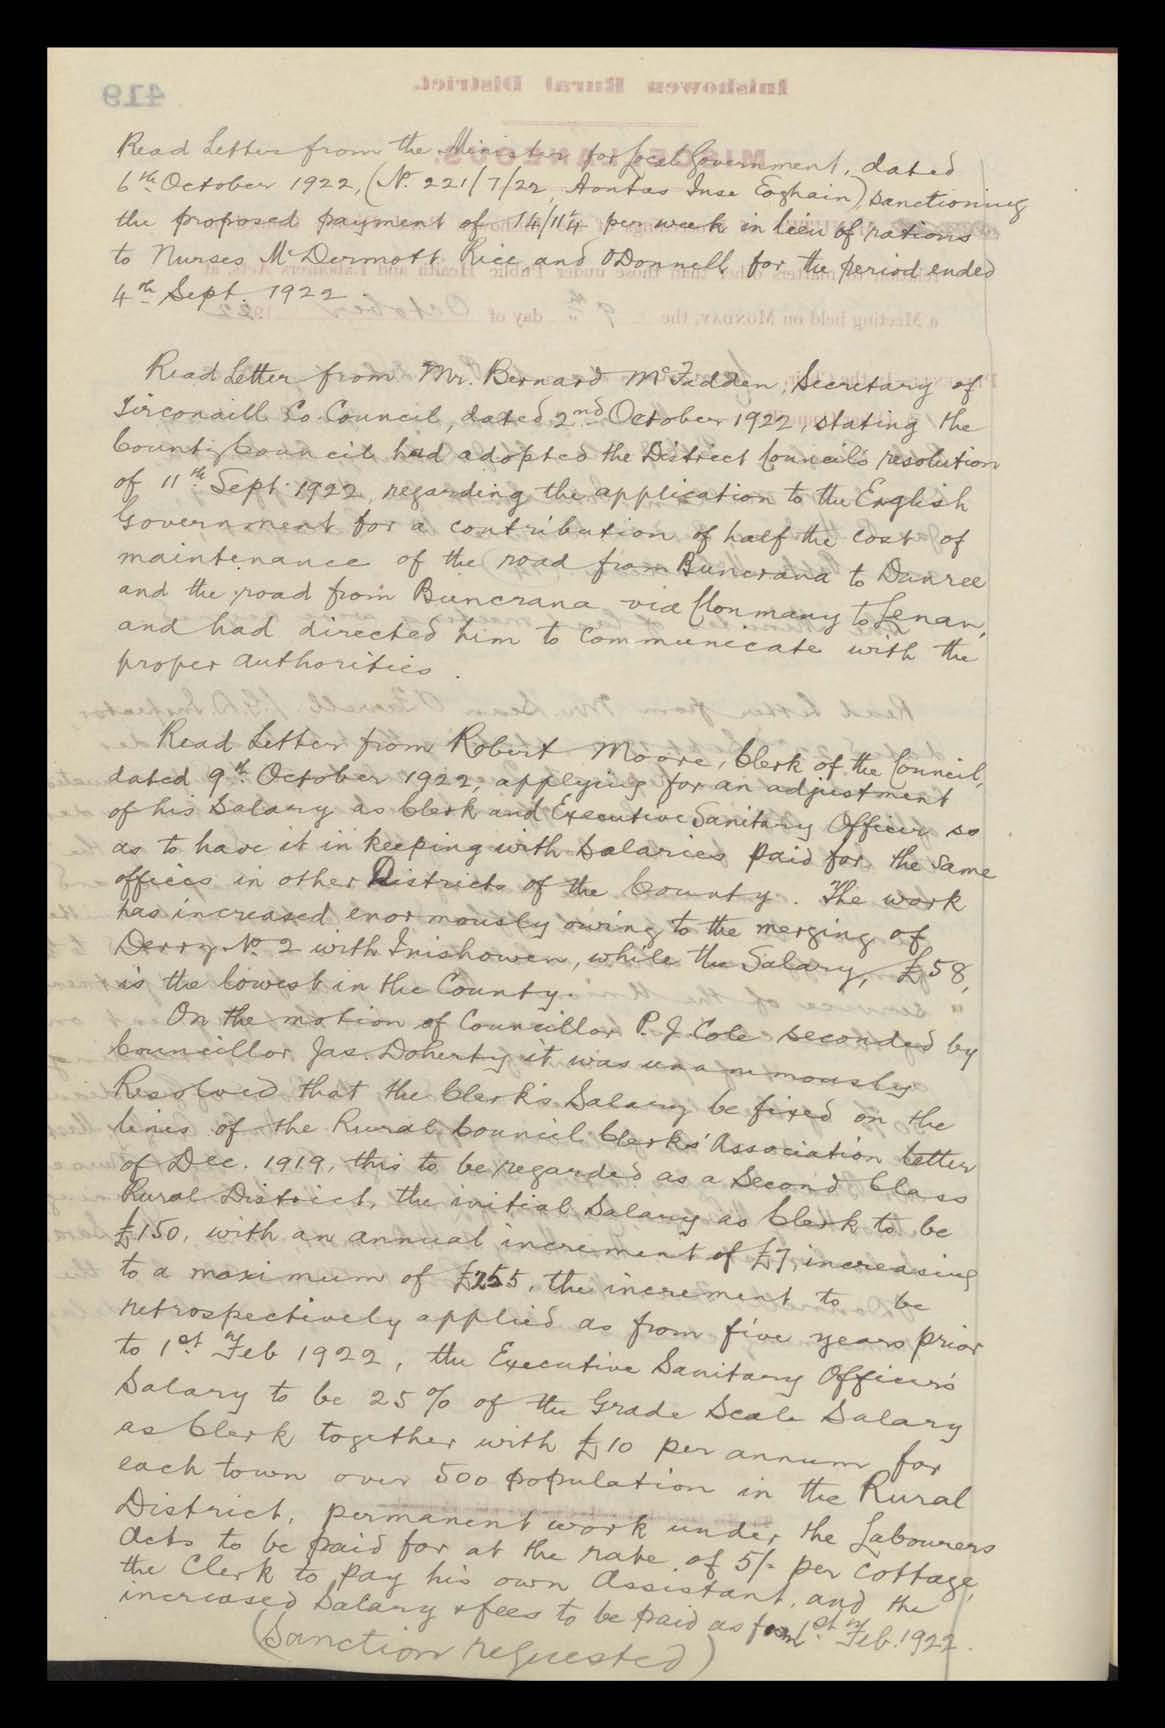 Read Letter from the Minister for Local Government, dated
6th October 1922, (No. 221/7/22, Aontas Inse Eoghain) sanctioning
the proposed payment of 14/11¼ per week in lieu of rations
to Nurses McDermott Rice and O'Donnell for the period ended
4th Sept. 1922.
Read Letter from Mr. Bernard McFadden, Secretary of
Tirconaill Co. Council, dated 2nd October 1922, stating the
County Council had adopted the District Council's resolution
of 11th Sept. 1922, regarding the application to the English
Government for a contribution of half the cost of
maintenance of the road from Buncrana to Dunree
and the road from Buncrana via Clonmany to Lenan,
and had directed him to communicate with the
proper authorities.
Read Letter from Robert Moore, Clerk of the Council,
dated 9th October 1922, applying for an adjustment
of his Salary as Clerk and Executive Sanitary Officer so
as to have it in keeping with Salaries paid for the same
offices in other Districts of the County. The work
has increased enormously owing to the merging of
Derry No. 2 with Inishowen, while the Salary, £58,
is the lowest in the County.
On the motion of Councillor P. J. Cole seconded by
Councillor Jas. Doherty it was unanimously
Resolved that the Clerk's Salary be fixed on the
lines of the Rural Council Clerks' Association letter
of Dec. 1919, this to be regarded as a Second Class
Rural District, the initial Salary as Clerk to be
£150, with an annual increment of £7, increasing
to a maximum of £255, the increment to be
retrospectively applied as from five years prior
to 1st Feb 1922, the Executive Sanitary Officer's
Salary to be 25% of the Grade Scale Salary
as Clerk together with £10 per annum for
each town over 500 population in the Rural
District, permanent work under the Labourers
Acts to be paid for at the rate of 5/- per cottage,
the Clerk to pay his own Assistant, and the
increased Salary & fees to be paid as from 1st Feb. 1922.
(Sanction requested)